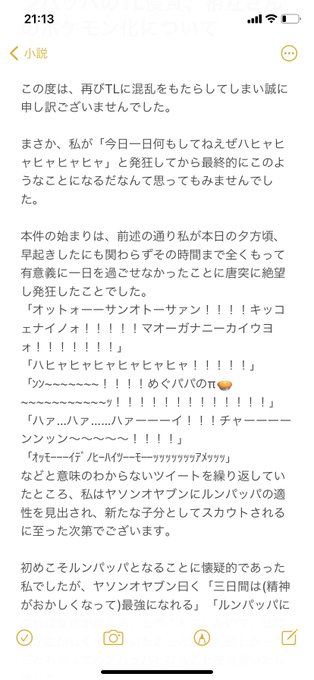 21:13
小説
この度は、再びTLに混乱をもたらしてしまい誠に
申し訳ございませんでした。
まさか、私が「今日一日何もしてねえぜハヒャヒ
ャヒャヒャヒャ」と発狂してから最終的にこのよ
うなことになるだなんて思ってもみませんでし
た。
本件の始まりは、前述の通り私が本日の夕方頃、
早起きしたにも関わらずその時間まで全くもって
有意義に一日を過ごせなかったことに唐突に絶望
し発狂したことでした。
「オットォーーサンオトーサァン！！！！キッコ
ェナイノォ！！！！！マオーガナニーカイウヨ
ォ！！！！！！！」
「ハヒャヒャヒャヒャヒャヒャ！！！！！」
「ｿｿ~~~~~~~！！！！めぐパパのπ🥧
~~~~~~~~~~~ｯ！！！！！！！！！！！！！」
「ハァ…ハァ……ハァーーーイ！！！チャーーーー
ンンッン〜〜〜〜〜！！！！」
「ｵｯﾓｰｰｰｲﾃﾞﾉﾋｰﾊｲﾂｰｰﾓｰｰｯｯｯｯｯｯｯｱﾒｯｯｯ」
などと意味のわからないツイートを繰り返してい
たところ、私はヤソンオヤブンにルンパッパの適
性を見出され、新たな子分としてスカウトされる
に至った次第でございます。
初めこそルンパッパとなることに懐疑的であった
私でしたが、ヤソンオヤブン曰く「三日間は(精神
がおかしくなって)最強になれる」「ルンパッパに